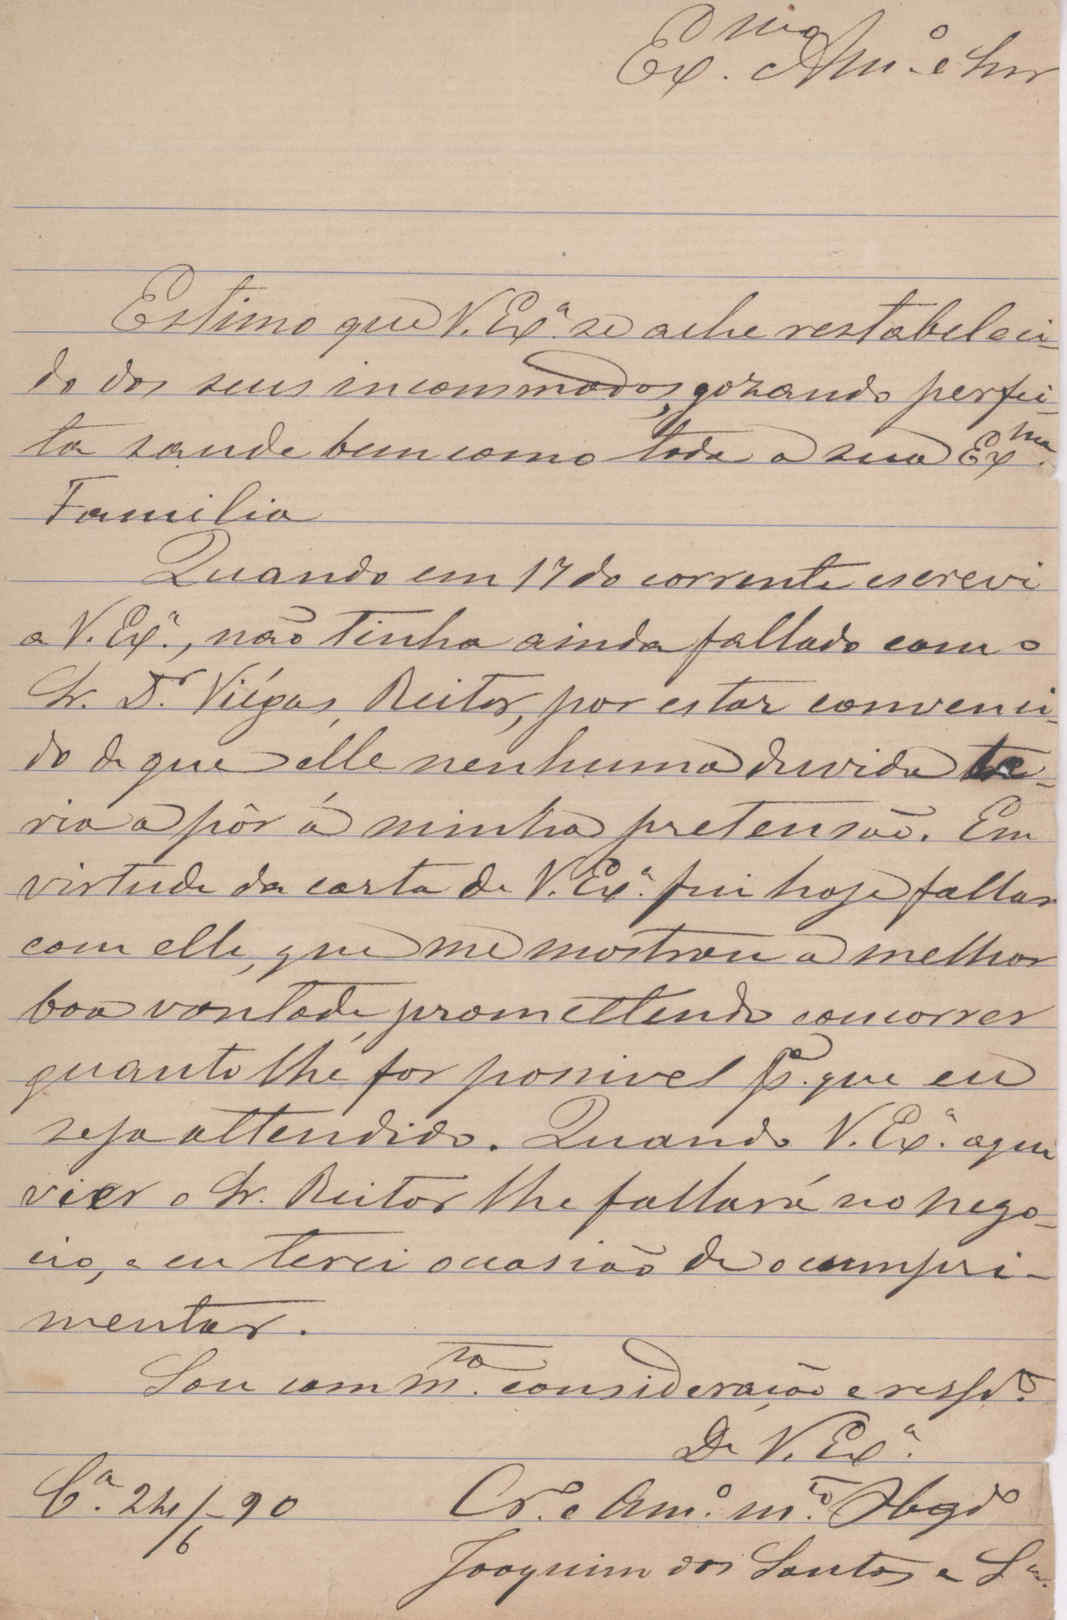 Ex.mo Am.o e Snr
Estimo que V. Ex.a se ache restabeleci-
do dos seus incommodos, gozando perfei-
ta saude bem como toda a sua Ex.ma
Familia
Quando em 17 do corrente escrevi
a V. Ex.a, não tinha ainda fallado com o
Sr. Dr. Viégas, Reitor, por estar convenci-
do de que elle nenhuma duvida te-
ria a pôr á minha pretensão. Em
virtude da carta de V. Ex.a fui hoje fallar
com elle, que me mostrou a melhor
boa vontade, promettendo concorrer
quanto lhe for possivel p.a que eu
seja attendido. Quando V. Ex.a aqui
vier o Sr. Reitor lhe fallará no nego-
cio, e eu terei occasião de o cumpri-
mentar.
Sou com m.ta consideração e resp.o
De V. Ex.a
C.a 24/6-90 Cr.o e Am.o m.to Obgdo
Joaquim dos Santos e S.a